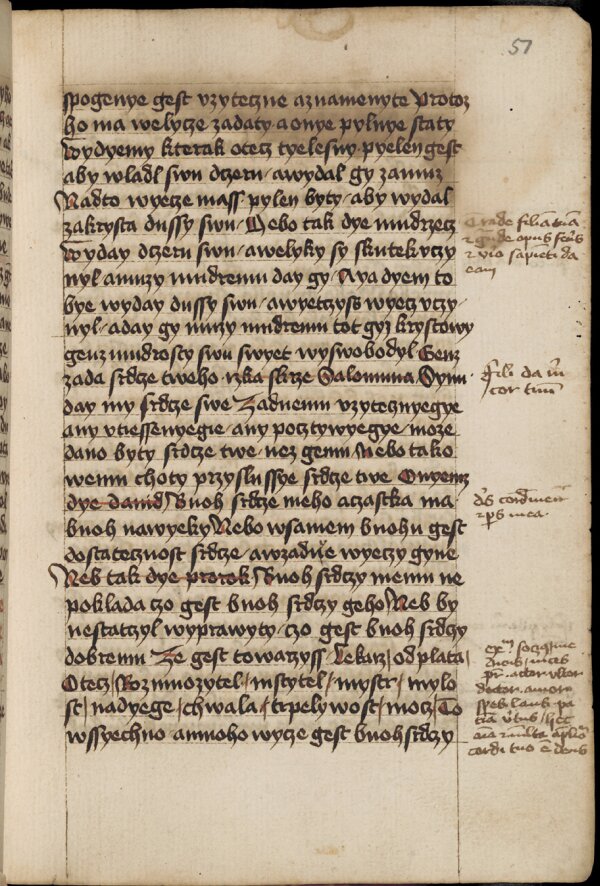 51
spogenye gest vzyteczne a znamenyte Protoz
ho ma welycze zadaty a o nye pylnye staty
Wydyemy kterak otecz tyelesny pyelen gest
aby wladl swu dczeru / a wydal gy za muz
Nadto wyecze mass pylen byty / aby wydal
za krysta dussy swu / Nebo tak dye mudrzecz
Wyday dczeru swu / a welyky sy skutek vczy
nyl / a muzy mudremu day gy / A ya dyem to
bye wyday dussy swu / a wyetczyss wyecz vczy
nyl / a day gy muzy mudremu tot gyz krystowy
genz mudrosty swu swyet wyswobodyl Genz
zada srdcze tweho / rzka skrze Salomuna Synu
day my srdcze swe Zadnemu vzytecznyegye
any vtiessenyegie / any pocztywyegye / moze
dano byty srdcze twe / nez gemu Nebo tako
wemu choty przyslussye srdcze twe Onyemz
dye dauid Buoh srdcze meho a czastka ma
buoh nawyeky Nebo w samem buohu gest
dostatecznost srdcze / a w zadne wyeczy gyne
Neb tak dye prorok Buoh srdczy memu ne
poklada czo gest buoh srdczy geho Neb by
nestatczyl wyprawyty / czo gest buoh srdczy
dobremu Ze gest towarzyss / lekarz / odplata /
Otecz / Rozmnozytel / mstytel / mystr / mylo
st / nadyege / chwala / trpelywost / mocz / To
wssyechno a mnoho wycze gest buoh srdczy
Fili da m
cor tuum
ds cordis mei
et pars mea